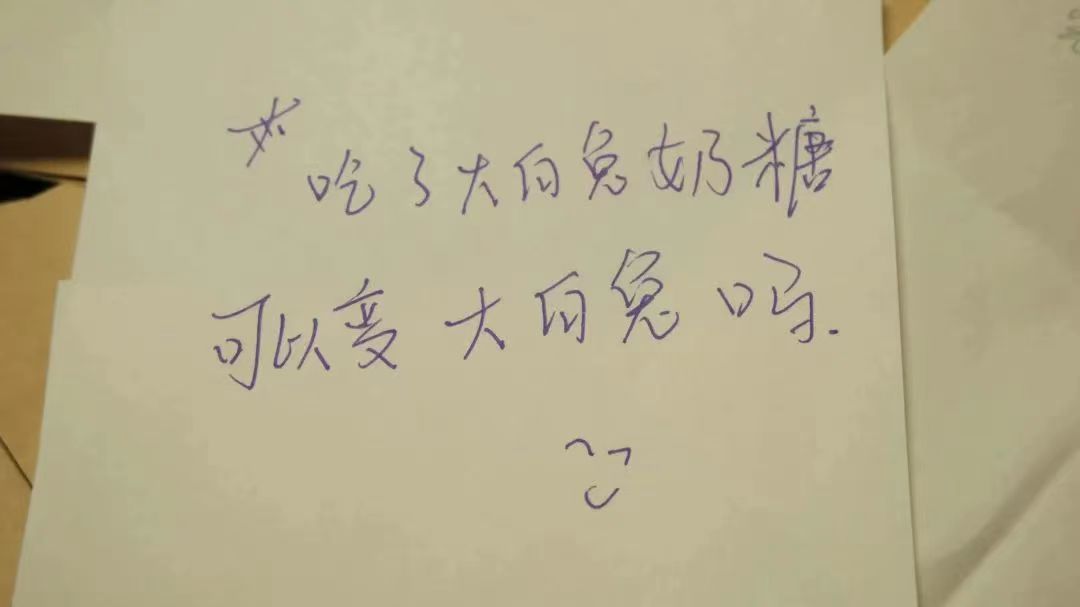 吃了大白兔奶糖
可以变大白兔吗.